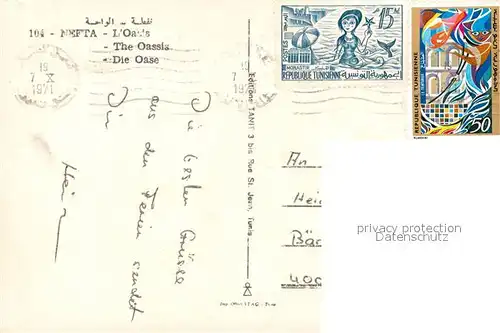 نفطة - الواحة
104 - NEFTA - L'Oasis
- The Oassis
- Die Oase
19
7 X
1971
15M
MONASTIR
REPUBLIQUE TUNISIENNE
الجمهورية التونسية
REPUBLIQUE TUNISIENNE
50
Editions TANIT 3 bis Rue St. Jean, Tunis
Die besten Grüsse
aus den Ferien sendet
Dir
Heinz
An
Hei
Bäc
400
privacy protection
Datenschutz